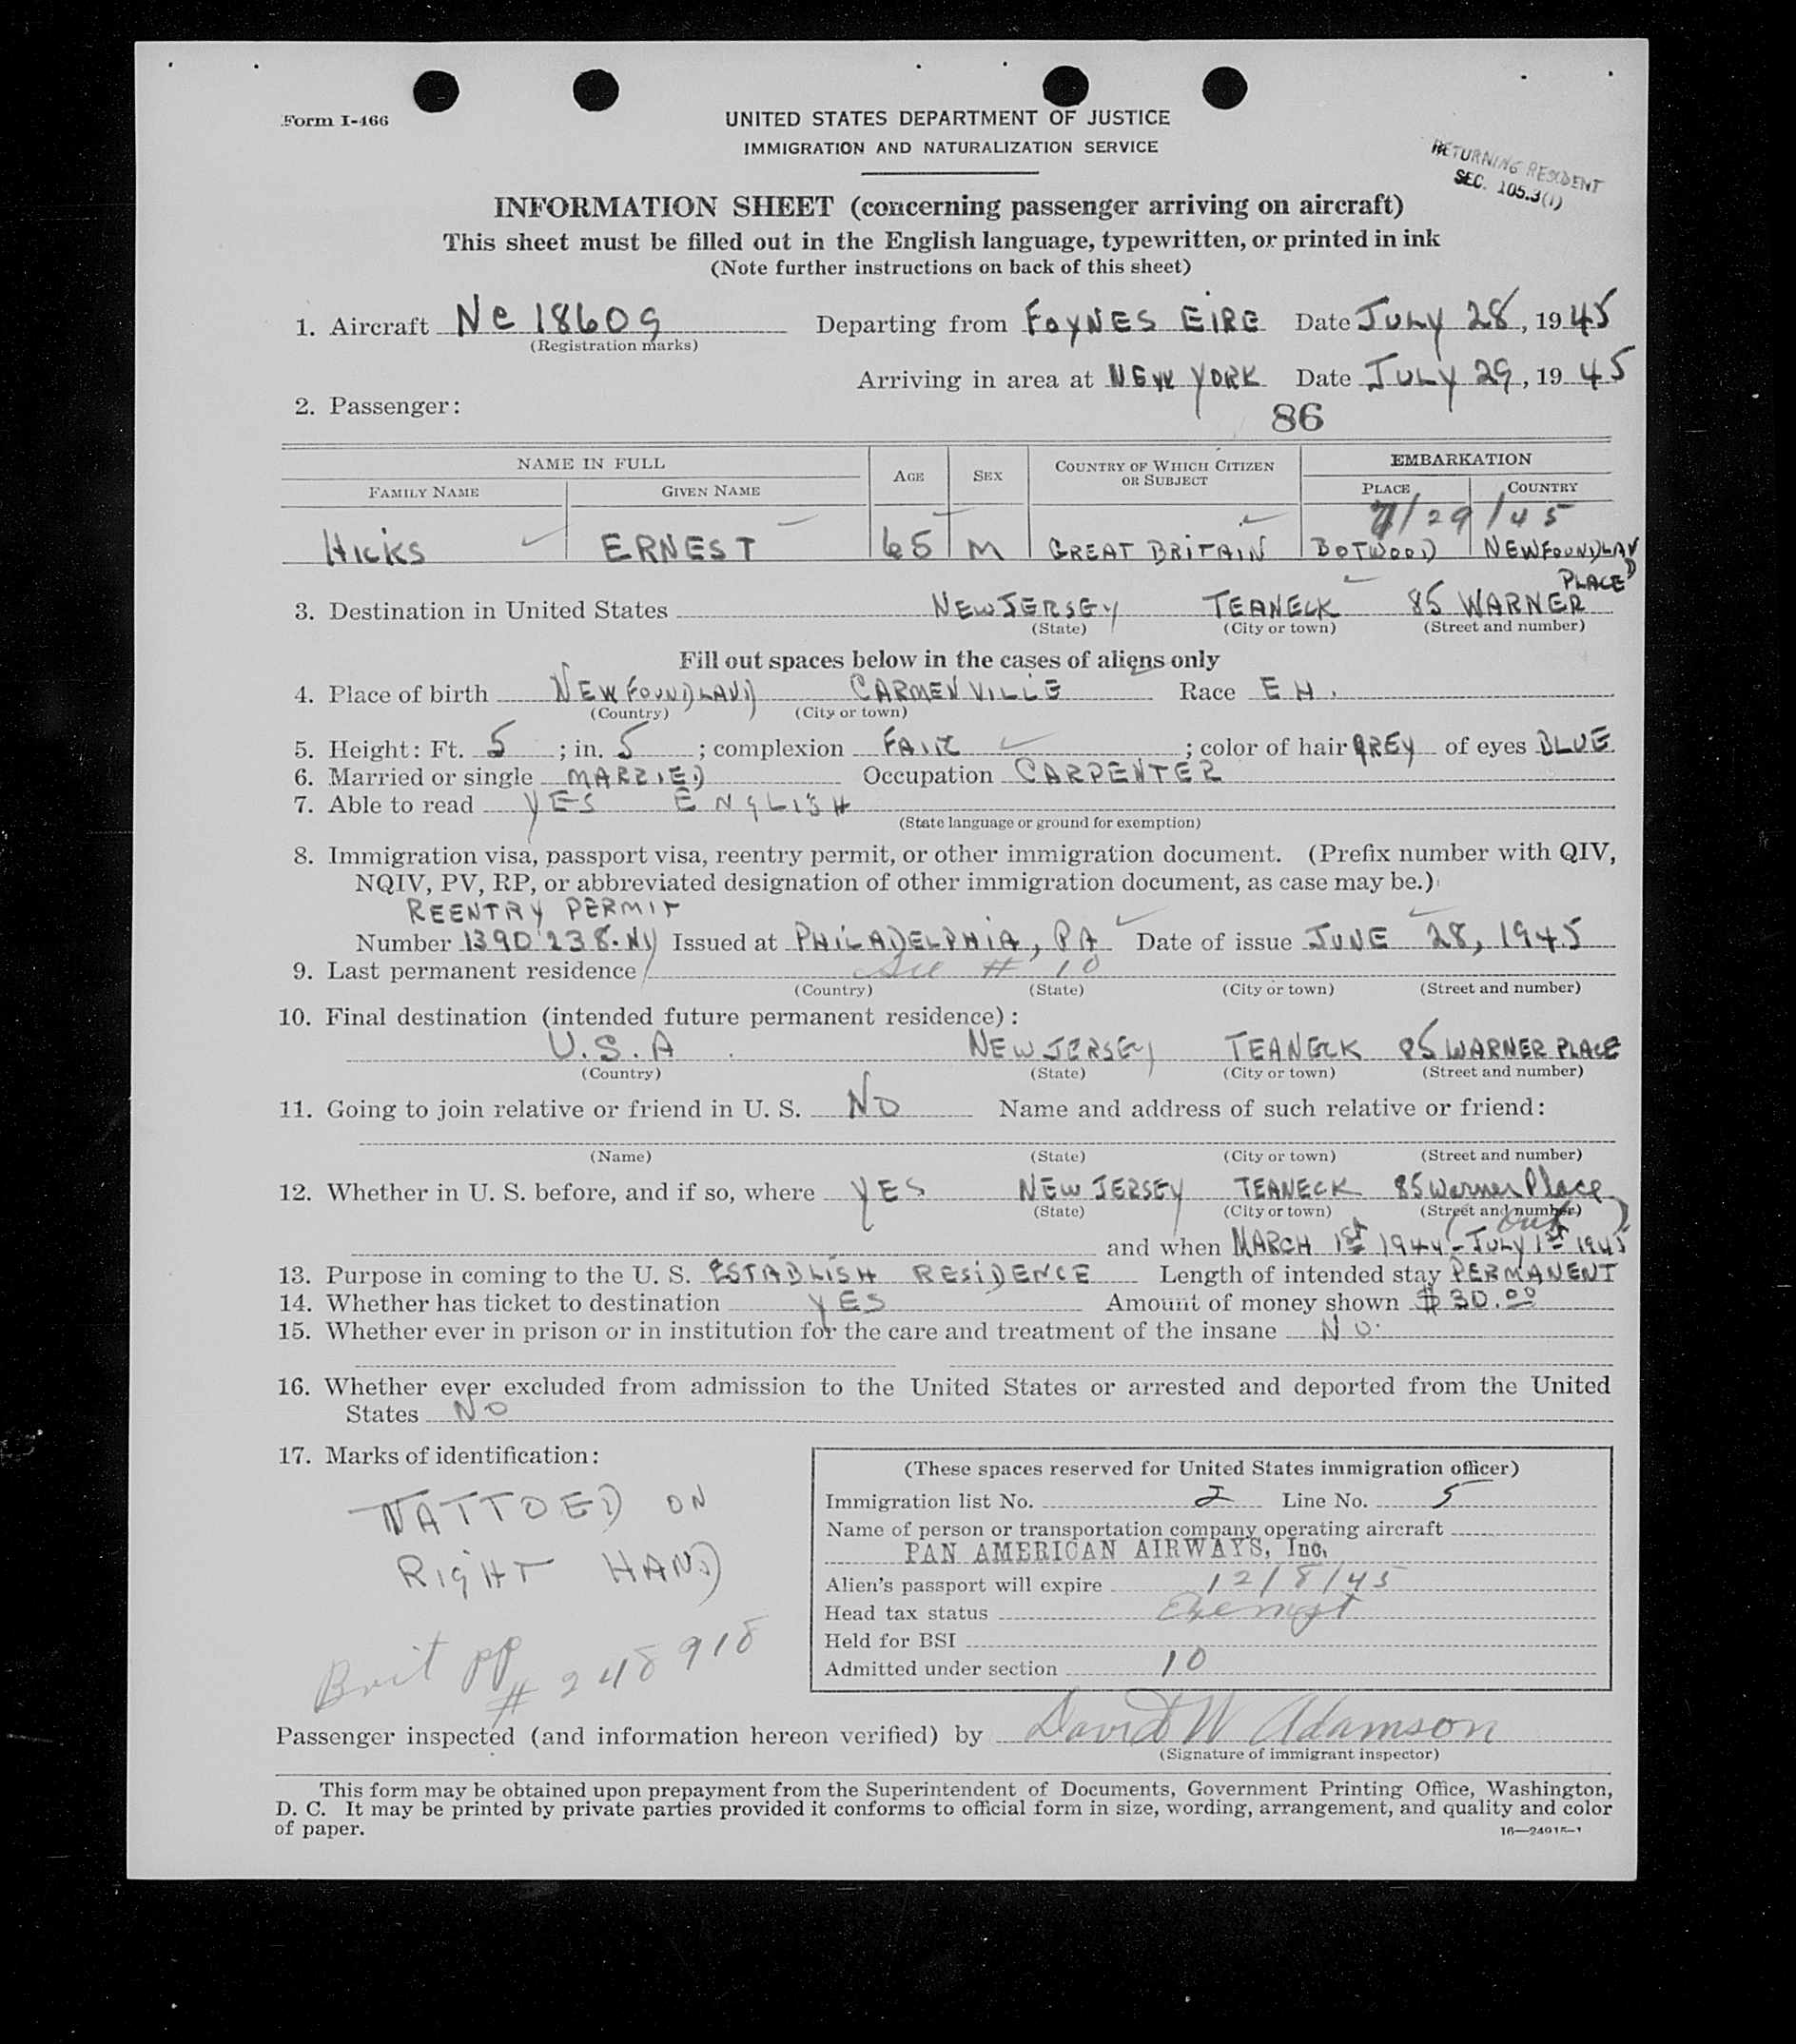 Form I-466
UNITED STATES DEPARTMENT OF JUSTICE
IMMIGRATION AND NATURALIZATION SERVICE
RETURNING RESIDENT
SEC. 105.3(1)
INFORMATION SHEET (concerning passenger arriving on aircraft)
This sheet must be filled out in the English language, typewritten, or printed in ink
(Note further instructions on back of this sheet)
1. Aircraft Nc 18609 Departing from FOYNES EIRE Date JULY 28, 1945
(Registration marks)
Arriving in area at NEW YORK Date JULY 29, 1945
2. Passenger:
86
NAME IN FULL AGE SEX COUNTRY OF WHICH CITIZEN OR SUBJECT EMBARKATION
FAMILY NAME GIVEN NAME PLACE COUNTRY
7/29/45
HICKS ERNEST 65 M GREAT BRITAIN BOTWOOD NEWFOUNDLAND
PLACE
3. Destination in United States NEW JERSEY TEANECK 85 WARNER
(State) (City or town) (Street and number)
Fill out spaces below in the cases of aliens only
4. Place of birth NEWFOUNDLAND CARMENVILLE Race EH.
(Country) (City or town)
5. Height: Ft. 5 ; in. 5 ; complexion FAIR ; color of hair GREY of eyes BLUE
6. Married or single MARRIED Occupation CARPENTER
7. Able to read YES ENGLISH
(State language or ground for exemption)
8. Immigration visa, passport visa, reentry permit, or other immigration document. (Prefix number with QIV,
NQIV, PV, RP, or abbreviated designation of other immigration document, as case may be.)
REENTRY PERMIT
Number 1390238.NY Issued at PHILADELPHIA, PA Date of issue JUNE 28, 1945
9. Last permanent residence See # 10
(Country) (State) (City or town) (Street and number)
10. Final destination (intended future permanent residence):
U.S.A. NEW JERSEY TEANECK 85 WARNER PLACE
(Country) (State) (City or town) (Street and number)
11. Going to join relative or friend in U. S. NO Name and address of such relative or friend:
(Name) (State) (City or town) (Street and number)
12. Whether in U. S. before, and if so, where YES NEW JERSEY TEANECK 85 Warner Place
(State) (City or town) (Street and number)
(Out )
and when MARCH 1st 1944 - JULY 1st 1945
13. Purpose in coming to the U. S. ESTABLISH RESIDENCE Length of intended stay PERMANENT
14. Whether has ticket to destination YES Amount of money shown $30.00
15. Whether ever in prison or in institution for the care and treatment of the insane NO.
16. Whether ever excluded from admission to the United States or arrested and deported from the United
States NO
17. Marks of identification:
TATTOED ON
RIGHT HAND
Brit pp
# 248918
(These spaces reserved for United States immigration officer)
Immigration list No. 2 Line No. 5
Name of person or transportation company operating aircraft
PAN AMERICAN AIRWAYS, Inc.
Alien's passport will expire 12/8/45
Head tax status Exempt
Held for BSI
Admitted under section 10
Passenger inspected (and information hereon verified) by David W Adamson
(Signature of immigrant inspector)
This form may be obtained upon prepayment from the Superintendent of Documents, Government Printing Office, Washington,
D. C. It may be printed by private parties provided it conforms to official form in size, wording, arrangement, and quality and color
of paper.
16—24915-1